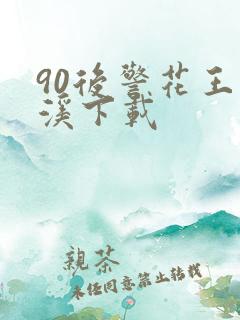 90後警花王
溪下載
親茶
未任同意禁止转载